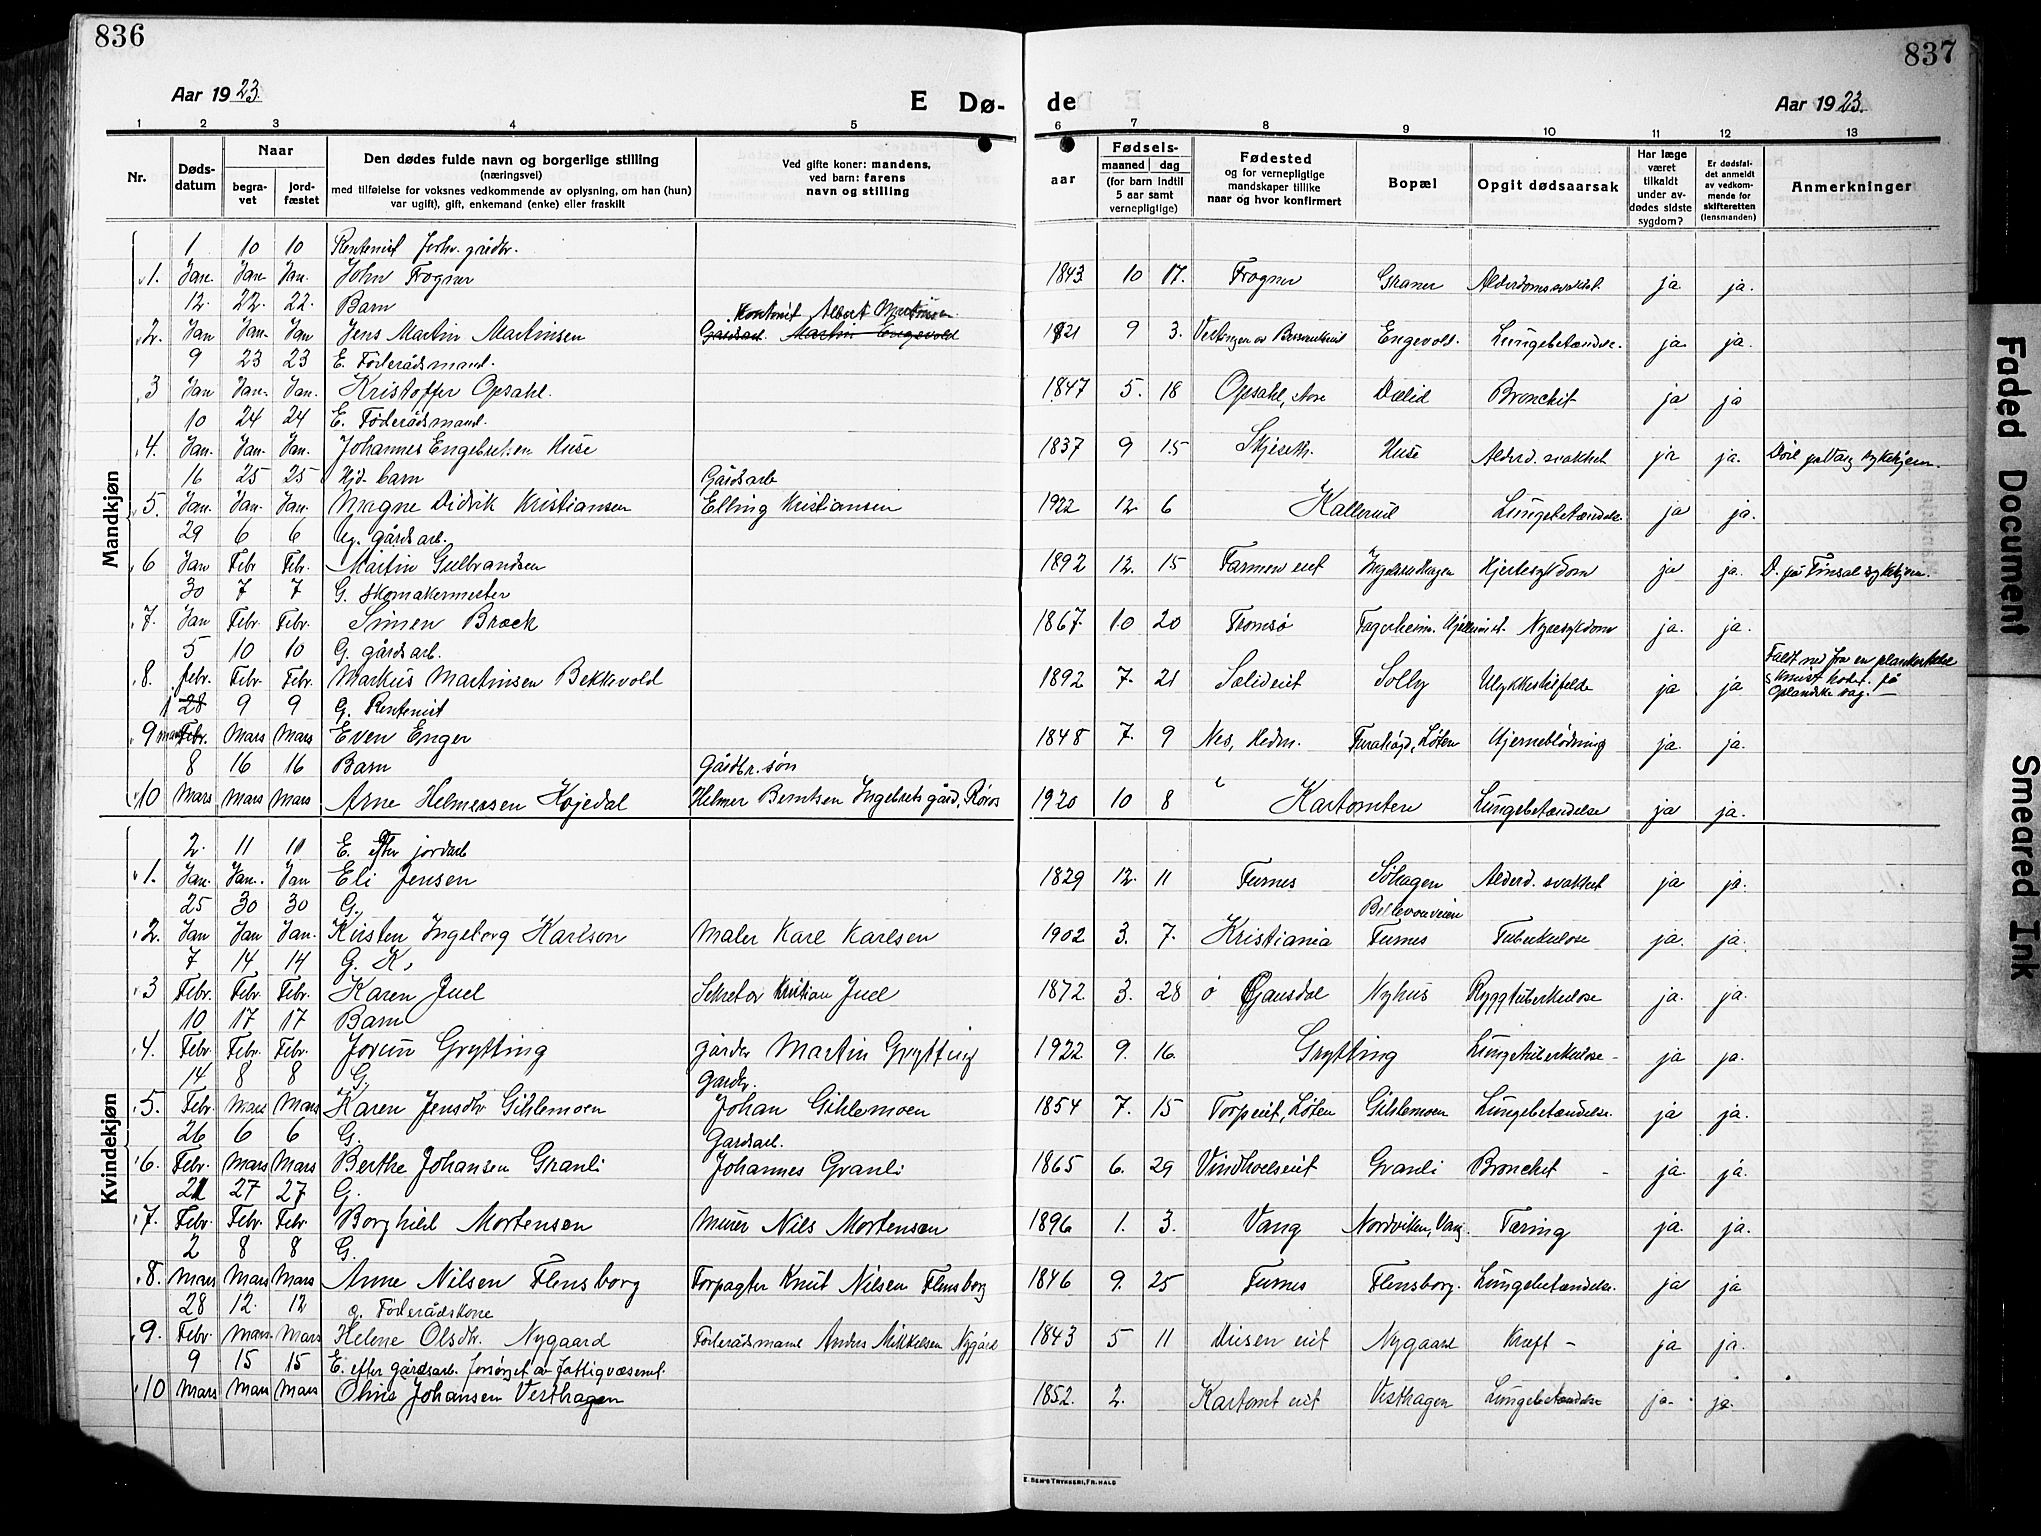 836
837
Aar 1923.
E Dø-
de
Aar 1923.
1 2 3 4 5
6 7 8 9 10 11 12 13
Nr.
Døds-
datum
Naar
begra-
vet
jord-
fæstet
Den dødes fulde navn og borgerlige stilling
(næringsvei)
med tilføielse for voksnes vedkommende av oplysning, om han (hun)
var ugift), gift, enkemand (enke) eller fraskilt
Ved gifte koner: mandens,
ved barn: farens
navn og stilling
aar
Fødsels-
maaned dag
(for barn indtil
5 aar samt
vernepligtige)
Fødested
og for vernepligtige
mandskaper tillike
naar og hvor konfirmert
Bopæl
Opgit dødsaarsak
Har læge
været
tilkaldt
under av-
dødes sidste
sygdom?
Er dødsfal-
det anmeldt
av vedkom-
mende for
skifteretten
(lensmanden)
Anmerkninger
Mandkjøn
1 10 10 Rentenist forhv. gårdbr.
1. Jan. Jan. Jan. John Frogner 1843 10 17. Frogner Graner Alderdomssvakhet ja ja.
12. 22. 22. Barn Albert Martinsen
2. Jan Jan. Jan Jens Martin Martinsen Gårdsarb. Martin Engevold 1921 9 3. Engevold. Lungebetændelse. ja ja.
9 23 23 E. Føderådsmand.
3 Jan Jan. Jan. Kristoffer Opsahl. 1847 5. 18 Opsahl, Dælid Bronchit ja ja
10 24 24 E. Føderådsmand.
4. Jan. Jan. Jan. Johannes Engebretsen Huse 1837 9 15. Skjeseth. Huse Alderd. svakhet ja ja. Død på Vang sykehjem.
16 25 25 barn Gårdsarb
5. Jan. Jan. Jan. Magne Didrik Kristiansen Elling Kristiansen 1922 12 6 Kallerud Lungebetændelse. ja ja.
29 6 6 Ug. gårdsarb.
6 Jan Febr Febr. Martin Gulbrandsen 1892 12. 15 Farmen eiet Hjertesykdom ja ja. D. på Finsal sykehjem.
30 7 7 G. Skomakermester
7. Jan Febr. Febr. Simen Bræck 1867. 10 20 Tromsø Fagerheim. Nyresykdom ja. ja.
5 10 10 G. gårdsarb.
8. febr. Febr. Febr. Markus Martinsen Bekkevold 1892 7. 21 Solieiet Solby Ulykkestilfelde ja ja Faldt ned fra en plankestabel
& knust hodet på
Oplandske sag.
1 28 9 9 G. Rentenist
9 mars Febr. Mars Mars Even Enger 1848 7. 9 Nes, Hedm. Furahøgd, Løten Hjerneblødning ja. ja.
8 16 16 Barn Gårdbr. søn
10 Mars Mars Mars Arne Helmersen Kojedal Hilmer Berntsen Ingebrets gård, Røros 1920 10 8 Kartomten Lungebetændelse ja ja.
Kvindekjøn
2. 11 11 E. efter jordarb
1. Jan. Jan. Jan Eli Jensen 1829 12. 11 Furnes Søhagen Alderd. svakhet ja ja.
25 30 30 G. Bellevueveien
2. Jan Jan Jan. Kirsten Ingeborg Karlson Maler Karl Karlsen 1902 3. 7. Kristiania Furnes Tuberkulose ja. ja.
7 14 14 G. K.
3 Febr. Febr. Febr. Karen Juel Sekretær Kristian Juel 1872 3. 28 ø Gausdal Nyhus Ryggtuberkulose ja. ja.
10 17 17 Barn
4. Febr. Febr. Febr. Jorun Grytting Martin Grytting 1922 9. 16. Grytting Lungetuberkulose - ja ja.
14 8 8 G. Gardbr.
5. Febr Mars Mars Karen Jensdtr Gihlemoen Johan Gihlemoen 1854 7. 15 Torpeiet, Løten Gihlemoen Lungebetændelse. ja ja.
26 6 6 G. Gardsarb.
6. Febr. Mars Mars Berthe Johansen Granli Johannes Granli 1865 6. 29 Vindhvelseiet Granli Bronchit - ja. ja.
21 27 27 G.
7. Febr. Febr. Febr Borghild Mortensen Murer Nils Mortensen 1896 1. 3. Vang Nordviken, Vang. Tæring ja. ja.
2 8 8 G.
8. Mars Mars Mars Anne Nilsen Flensborg Forpagter Knut Nilsen Flensborg 1846 9. 25 Furnes Flensborg. Lungebetændelse. ja ja
28 12. 12 g. Føderådskone
9. Febr. Mars. Mars Helene Olsdtr. Nygaard Føderådsmand Anders Mikkelsen Nygård 1843 5 11 Diesen eiet Nygaard Kræft - ja ja.
9 15 15 E. efter gårdsarb. forsørget av fattigvæsenet.
10 Mars Mars Mars Oline Johansen Vesthagen 1852. 2. Kartomt eiet Vesthagen Lungebetændelse ja. ja.
E. SEM'S TRYKKERI, FR.HALD
Faded Document
Smeared Ink